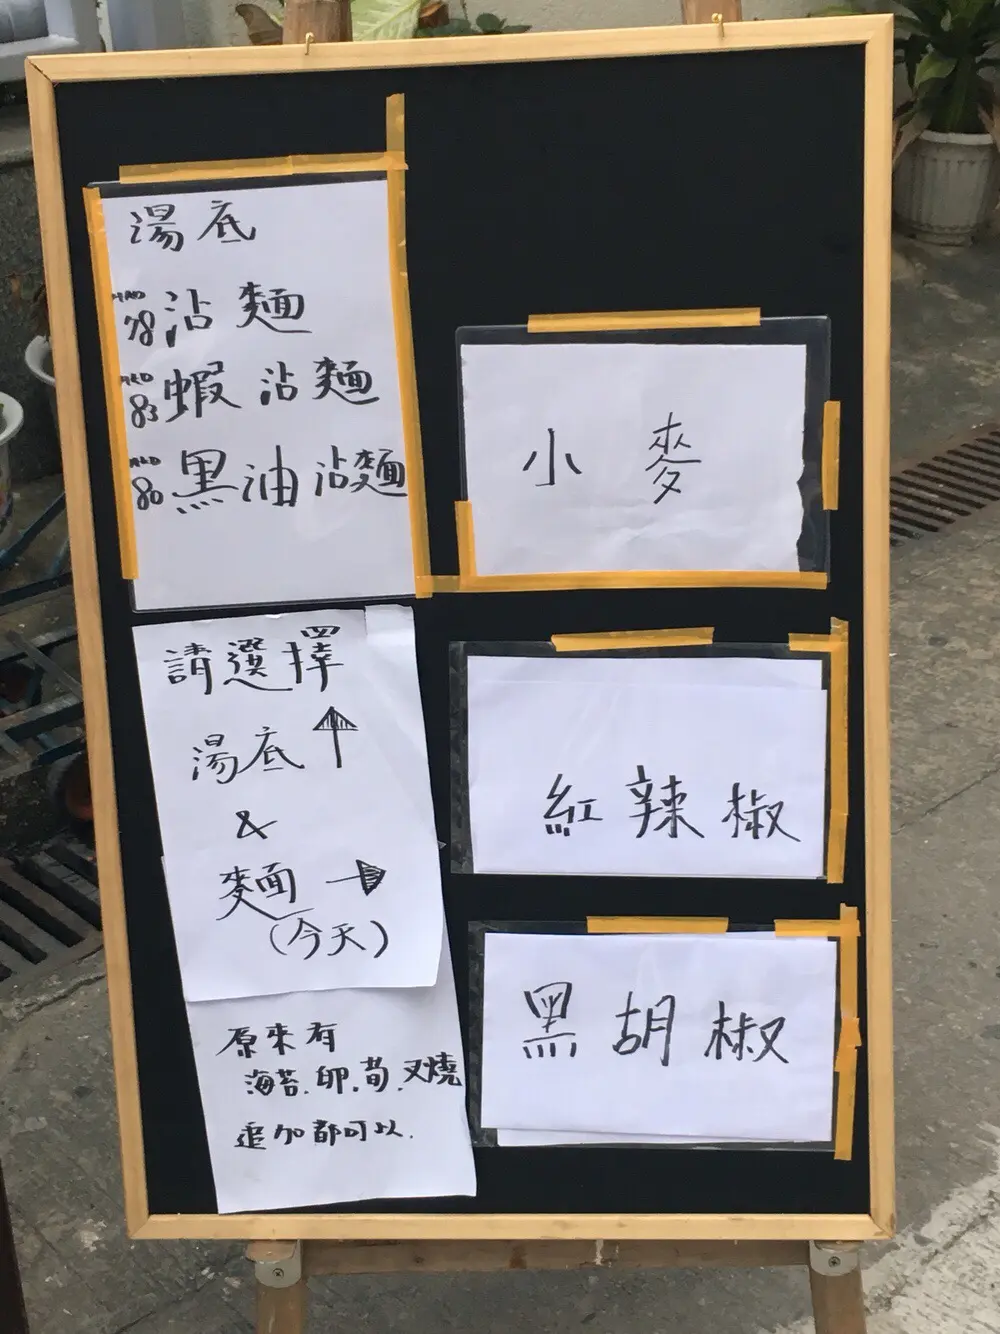 湯底
78 沾麵
83 蝦沾麵
80 黑油沾麵
請選擇
湯底 ↑
&
麵 →
(今天)
原來有
海苔.卵.荀.叉燒
追加都可以.
小麥
紅辣椒
黑胡椒